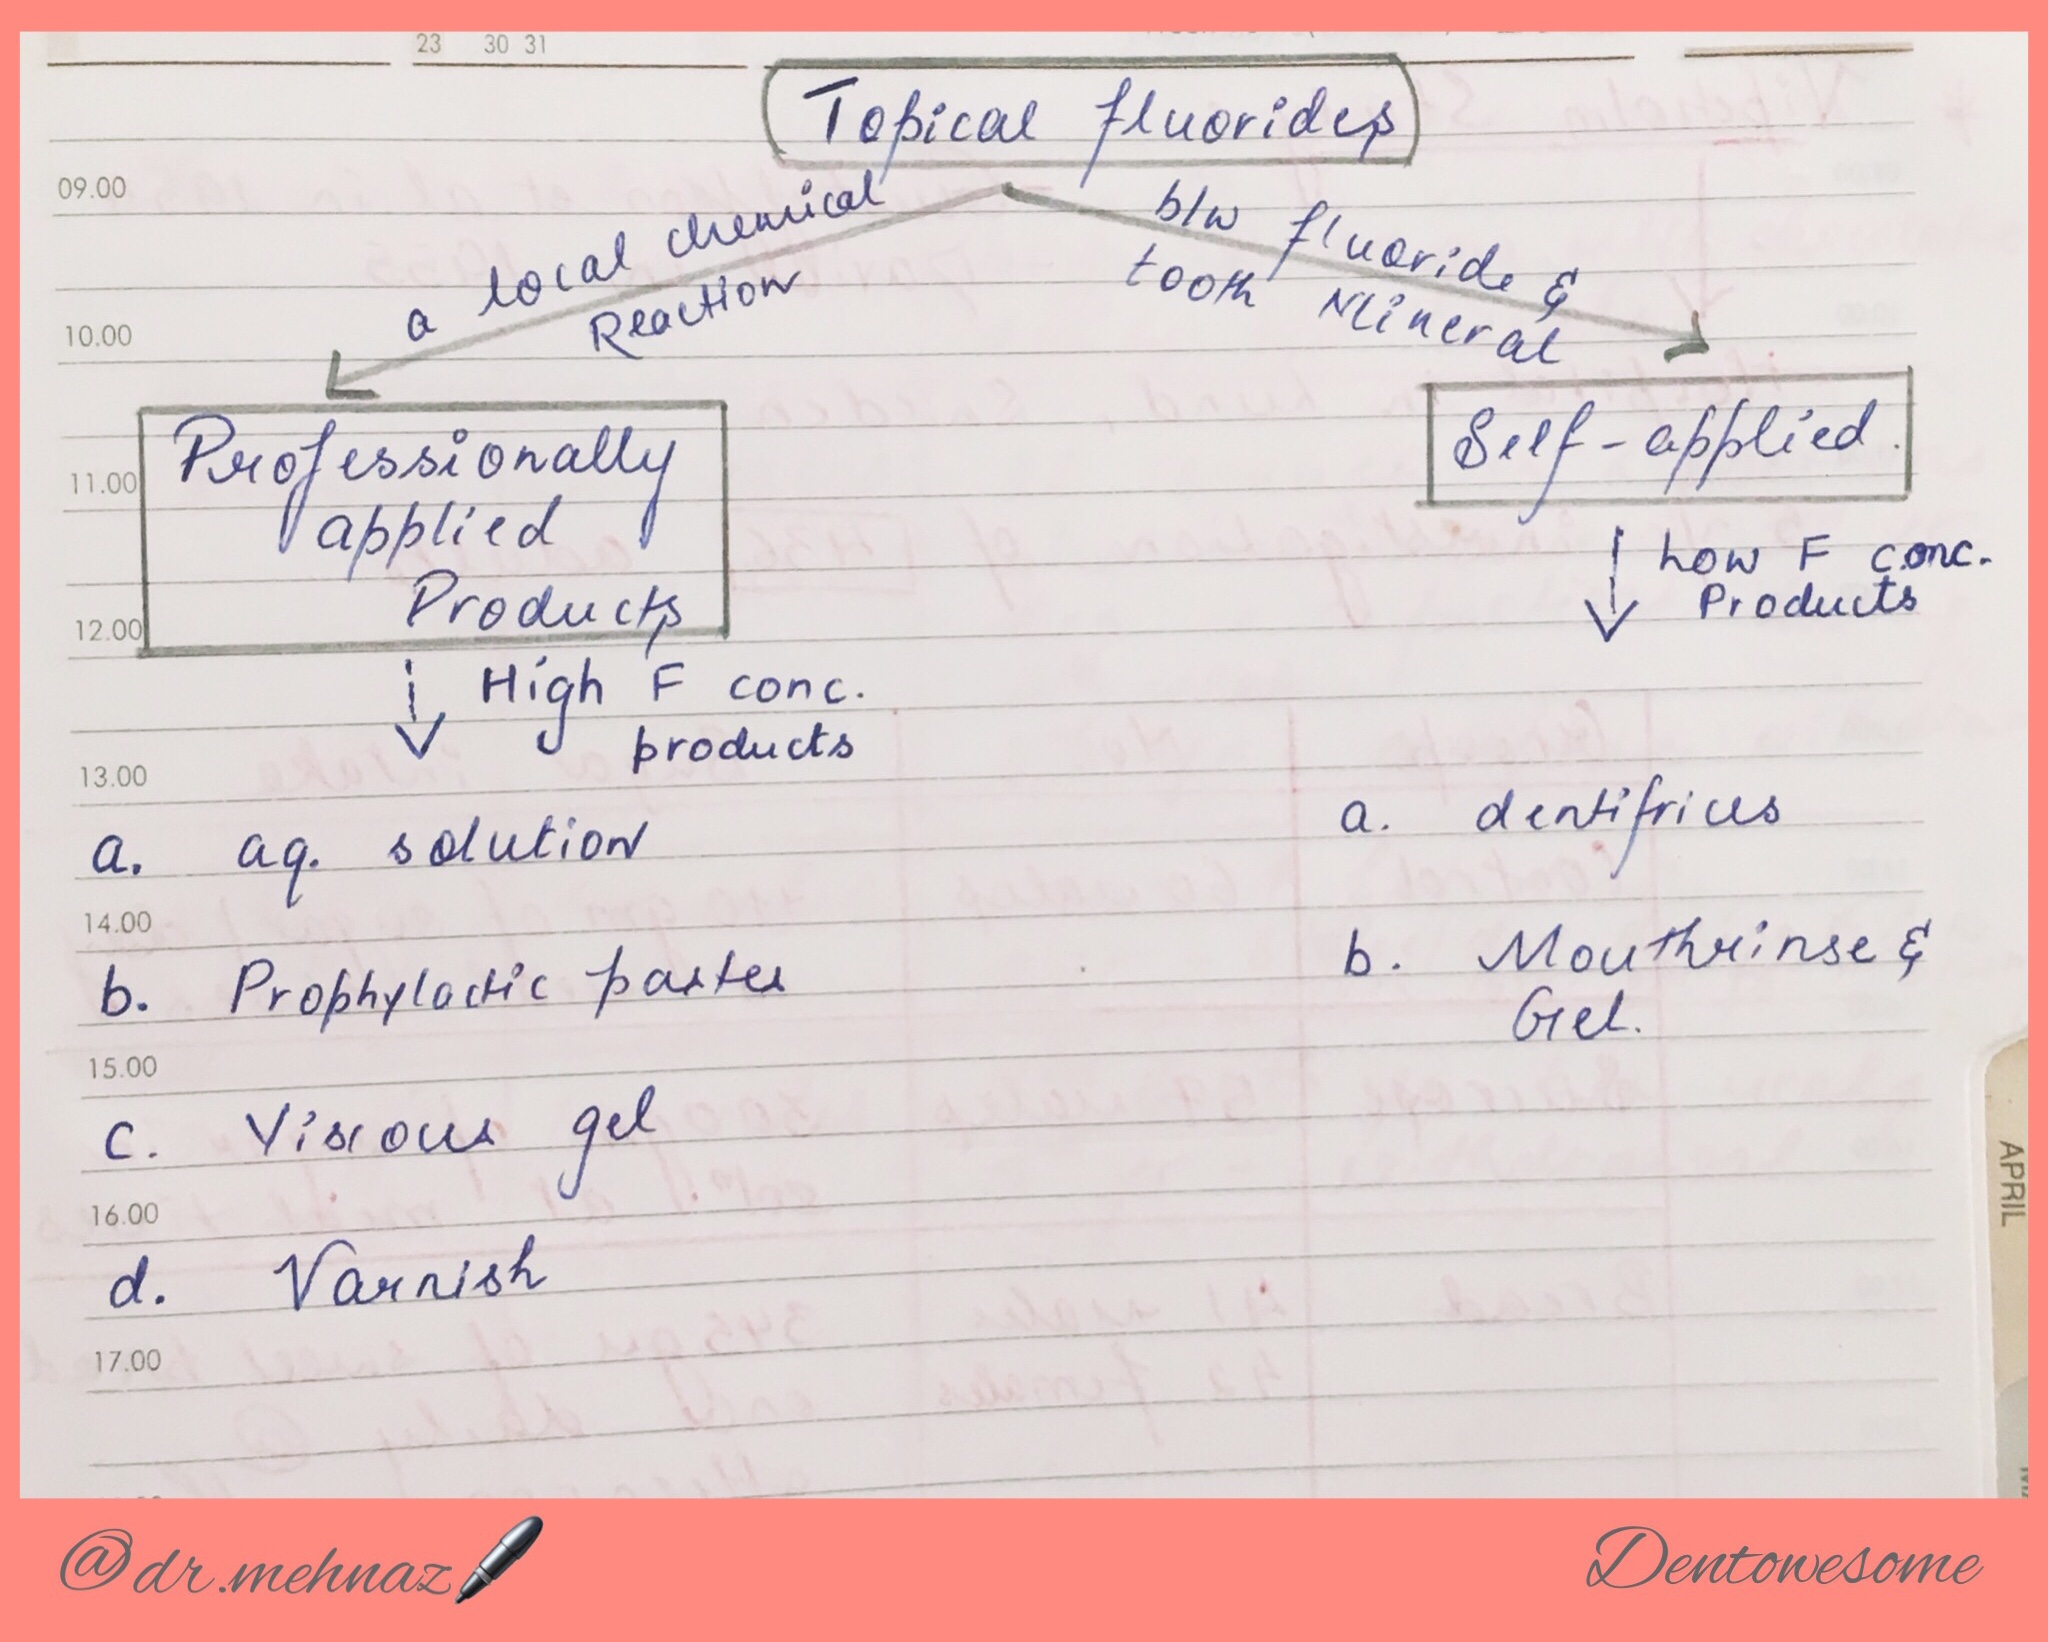 23 30 31
Topical fluorides
09.00
a local chemical
Reaction
b/w fluoride &
tooth Mineral
10.00
Professionally
applied
Products
Self-applied.
11.00
12.00
Low F conc.
Products
High F conc.
products
13.00
a. aq. solution
a. dentifrices
14.00
b. Prophylactic pastes
b. Mouthrinse &
Gel.
15.00
c. Viscous gel
16.00
d. Varnish
17.00
APRIL
@dr.mehnaz
Dentowesome